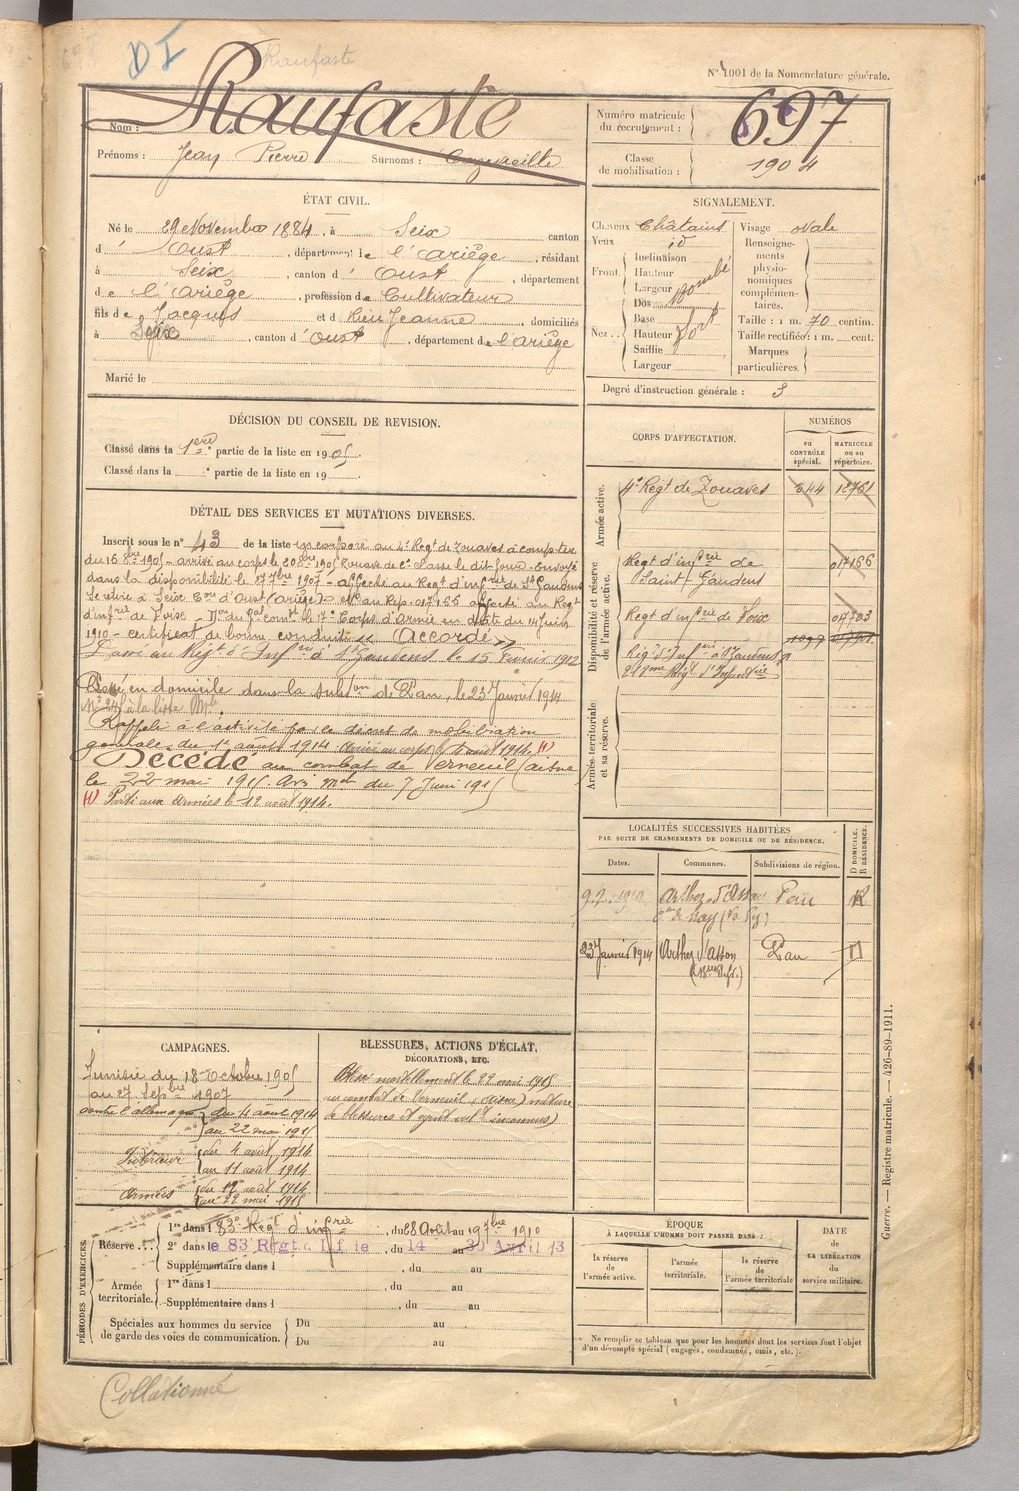 DI
Raufaste
N° 1001 de la Nomenclature générale.
Nom : Raufaste
Prénoms : Jean Pierre Surnoms :
Numéro matricule du recrutement : 697
Classe de mobilisation : 1904
ÉTAT CIVIL.
Né le 29 Novembre 1884, à Seix canton
d' Oust, département de l'Ariège, résidant
à Seix, canton d' Oust, département
de l'Ariège, profession de Cultivateur
fils de Jacques et de Rieu Jeanne, domiciliés
à Seix, canton d' Oust, département de l'Ariège
Marié le
SIGNALEMENT.
Cheveux Châtains
Yeux id
Front. Inclinaison
Hauteur
Largeur Bombé
Nez.. Dos
Base
Hauteur fort
Saillie
Largeur
Visage ovale
Renseignements physionomiques complémentaires.
Taille : 1 m. 70 centim.
Taille rectifiée : 1 m. cent.
Marques particulières.
Degré d'instruction générale : 3
DÉCISION DU CONSEIL DE REVISION.
Classé dans la 1ère partie de la liste en 1905.
Classé dans la ° partie de la liste en 19 .
DÉTAIL DES SERVICES ET MUTATIONS DIVERSES.
Inscrit sous le n° 43 de la liste incorporé au 4e Regt de Zouaves à compter
du 16 8bre 1905 - arrivé au corps le 20 8bre 1905 Zouave de 2e Classe le dit jour - Envoyé
dans la disponibilité le 27 7bre 1907 - affecté au Regt d'infrie de St Gaudens
Se retire à Seix Con d'Oust (Ariège) No au Rep. 017166 affecté au Regt
d'infrie de Foix Don du Gal comt le 17e Corps d'Armée en date du 14 Juin
1910 - certificat de bonne conduite « Accordé »
Passé au Regt d'Infrie de St Gaudens le 15 Février 1912
Passé en domicile dans la subdon de Pau, le 23 Janvier 1914
à la liste Mle
Rappelé à l'activité par le décret de mobilisation
générale du 1er août 1914. Arrivé au corps le 4 août 1914. (1)
Décédé au combat de Verneuil (aisne)
le 22 mai 1915. Avis Mel du 7 Juin 1915
(1) Parti aux armées le 12 août 1914.
CORPS D'AFFECTATION.
NUMÉROS
au CONTRÔLE spécial.
MATRICULE ou au répertoire.
Armée active.
4e Regt de Zouaves 344 12761
Disponibilité et réserve de l'armée active.
Regt d'infrie de Saint-Gaudens 017166
Regt d'infrie de Foix 04703
Régt d'Infrie de St Gaudens
218me Régt d'Infanterie
Armée territoriale et sa réserve.
LOCALITÉS SUCCESSIVES HABITÉES
PAR SUITE DE CHANGEMENTS DE DOMICILE OU DE RÉSIDENCE.
Dates. Communes. Subdivisions de région. D DOMICILE. R RÉSIDENCE.
Arthez d'Asson Pau R
23 Janvier 1914 Arthez d'Asson Pau D
CAMPAGNES.
Tunisie du 18 Octobre 1905
au 27 Sepbre 1907
contre l'allemagne du 4 août 1914
au 22 mai 1915
Intérieur du 4 août 1914
au 11 août 1914
Armées du 12 août 1914
au 22 mai 1915
BLESSURES, ACTIONS D'ÉCLAT,
DÉCORATIONS, ETC.
Blessé mortellement le 22 mai 1915
au combat de Verneuil (aisne) nature
de blessures et agent vulnt inconnus)
PÉRIODES D'EXERCICES.
Réserve... 1re dans le 83e Regt d'infrie, du 28 Août au 19 7bre 1910
2e dans le 83 Regt d'Inf ie, du 14 au 30 Avril 13
Supplémentaire dans l , du au
Armée territoriale. 1re dans l , du au
Supplémentaire dans l , du au
Spéciales aux hommes du service de garde des voies de communication. Du au
Du au
ÉPOQUE
À LAQUELLE L'HOMME DOIT PASSER DANS :
la réserve de l'armée active. l'armée territoriale. la réserve de l'armée territoriale
DATE de LA LIBÉRATION du service militaire.
Ne remplir ce tableau que pour les hommes dont les services font l'objet
d'un décompte spécial (engagés, condamnés, omis, etc.).
Guerre. — Registre matricule. — 426-89-1911.
Collationné